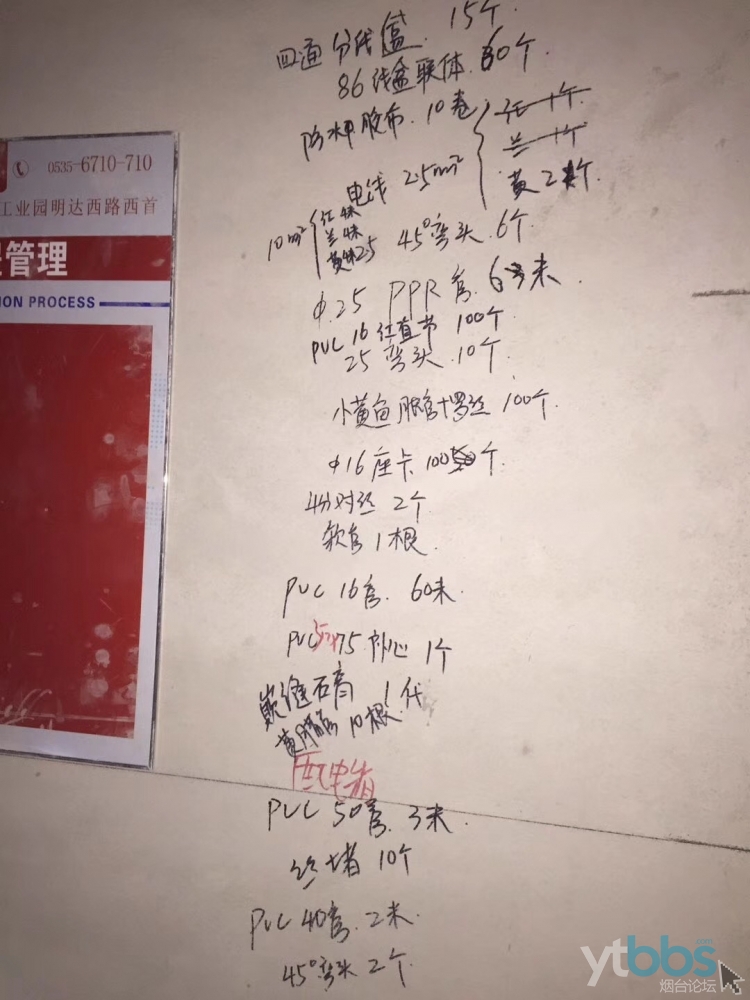 四通分线盒. 15个.
86线盒联体. 60个.
防水胶布. 10卷
红1个.
兰1个.
黄2个.
电线 2.5m²
10m² 红
兰
黄 2.5
45°弯头. 6个.
φ.25 PPR管. 6米.
PVC 16 红直节 100个.
25 弯头. 10个.
小黄鱼胶管+罗丝 100个.
φ16座卡 100个.
4分对丝 2个
软管1根.
PVC 16管. 60米.
PVC 75 补心 1个
嵌缝石膏 1代
黄腊管 10根.
配电箱
PVC 50管. 3米.
丝堵 10个
PVC 40管. 2米.
45°弯头 2个.
0535-6710-710
工业园明达西路西首
管理
ION PROCESS
ytbbs.com
烟台论坛